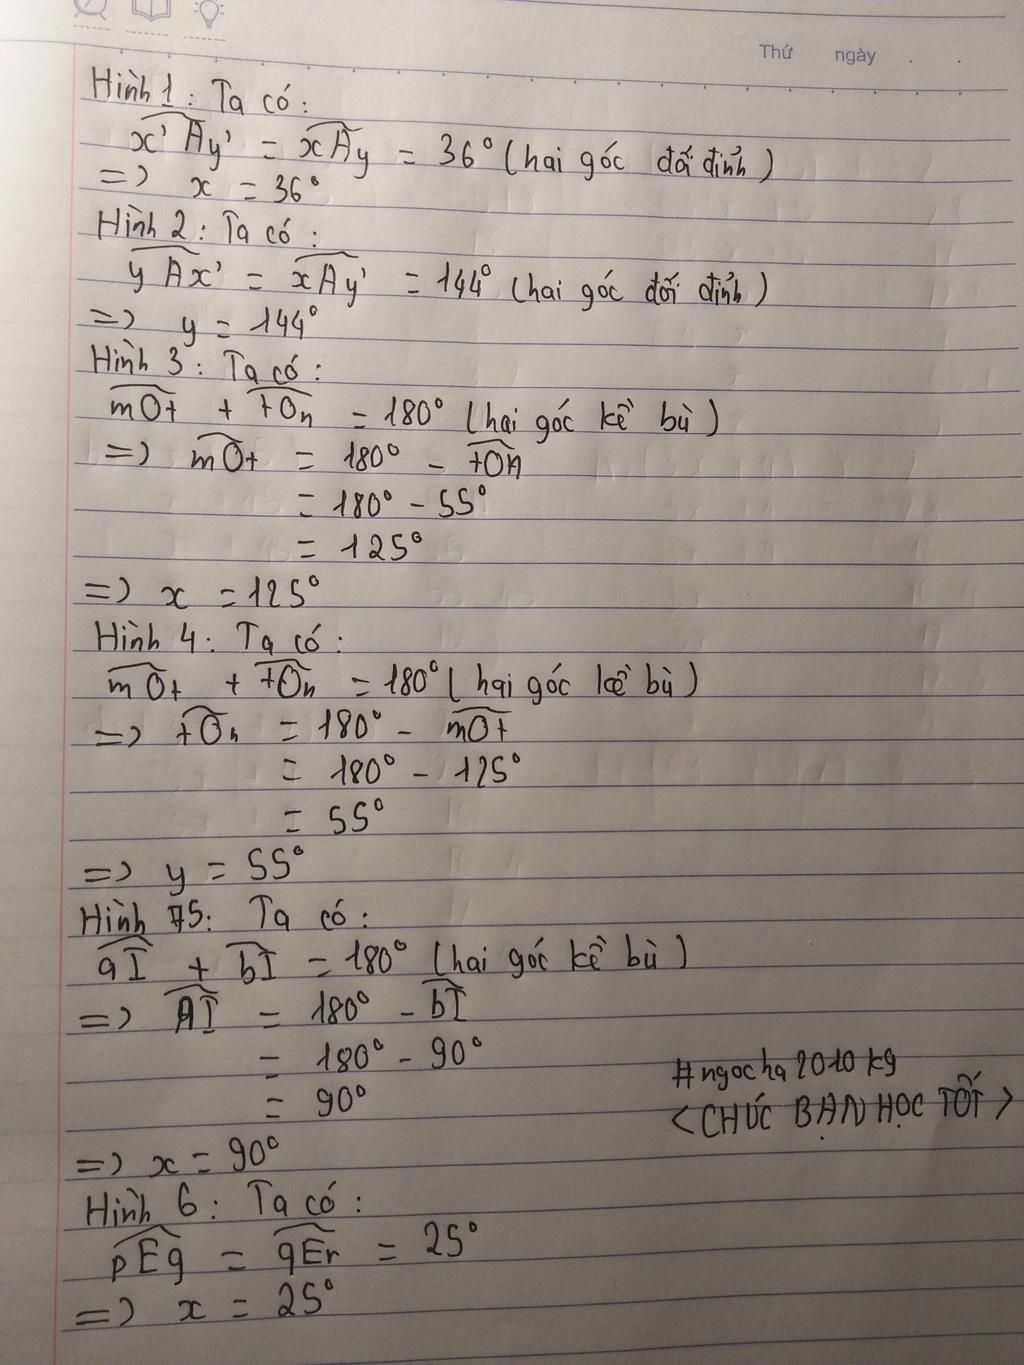 Thứ ngày
Hình 1 : Ta có :
x'Ay' = xAy = 36° (hai góc đối đỉnh)
=> x = 36°
Hình 2 : Ta có :
yAx' = xAy' = 144° (hai góc đối đỉnh)
=> y = 144°
Hình 3 : Ta có :
mOt + tOn = 180° (hai góc kề bù)
=> mOt = 180° - tOn
= 180° - 55°
= 125°
=> x = 125°
Hình 4 : Ta có :
mOt + tOn = 180° (hai góc kề bù)
=> tOn = 180° - mOt
= 180° - 125°
= 55°
=> y = 55°
Hình 5 : Ta có :
aI + bI = 180° (hai góc kề bù)
=> AI = 180° - bI
= 180° - 90°
= 90°
#ngocha2010kg
<CHÚC BẠN HỌC TỐT>
=> x = 90°
Hình 6 : Ta có :
pEq = qEr = 25°
=> x = 25°